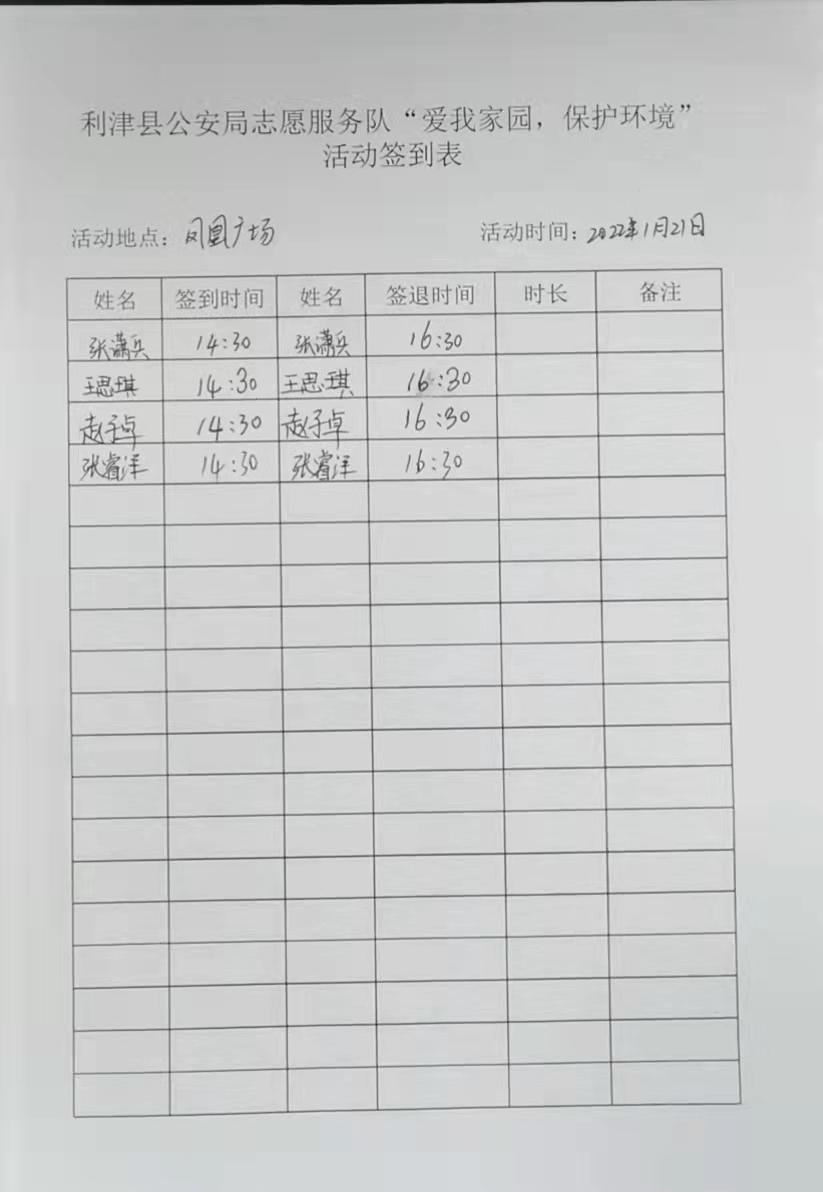 利津县公安局志愿服务队“爱我家园，保护环境”
活动签到表
活动地点：凤凰广场 活动时间：2022年1月21日
姓名 签到时间 姓名 签退时间 时长 备注
张潇兵 14:30 张潇兵 16:30
王思琪 14:30 王思琪 16:30
赵子卓 14:30 赵子卓 16:30
张睿洋 14:30 张睿洋 16:30